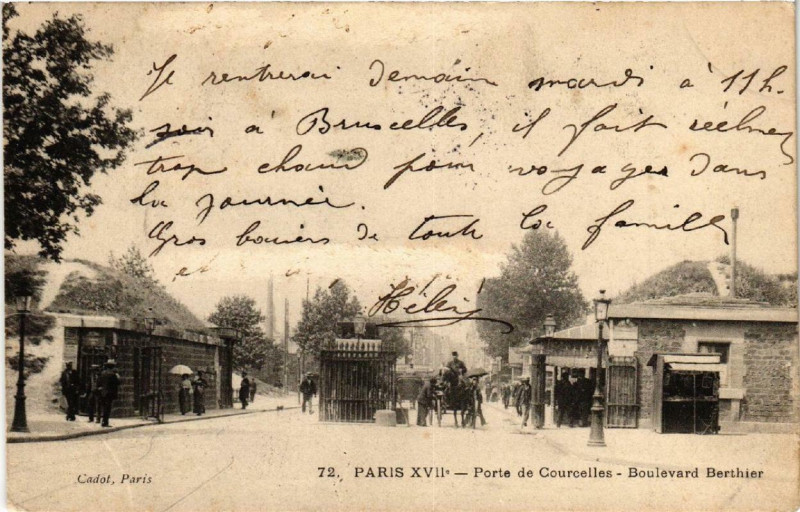 Je rentrerai Demain mardi à 11h.
soir à Bruxcelles, il fait réelmen
trop chaud pour voyager dans
la journée.
Gros baisers de toute la famille
et
72. PARIS XVIIe — Porte de Courcelles - Boulevard Berthier
Cadot, Paris